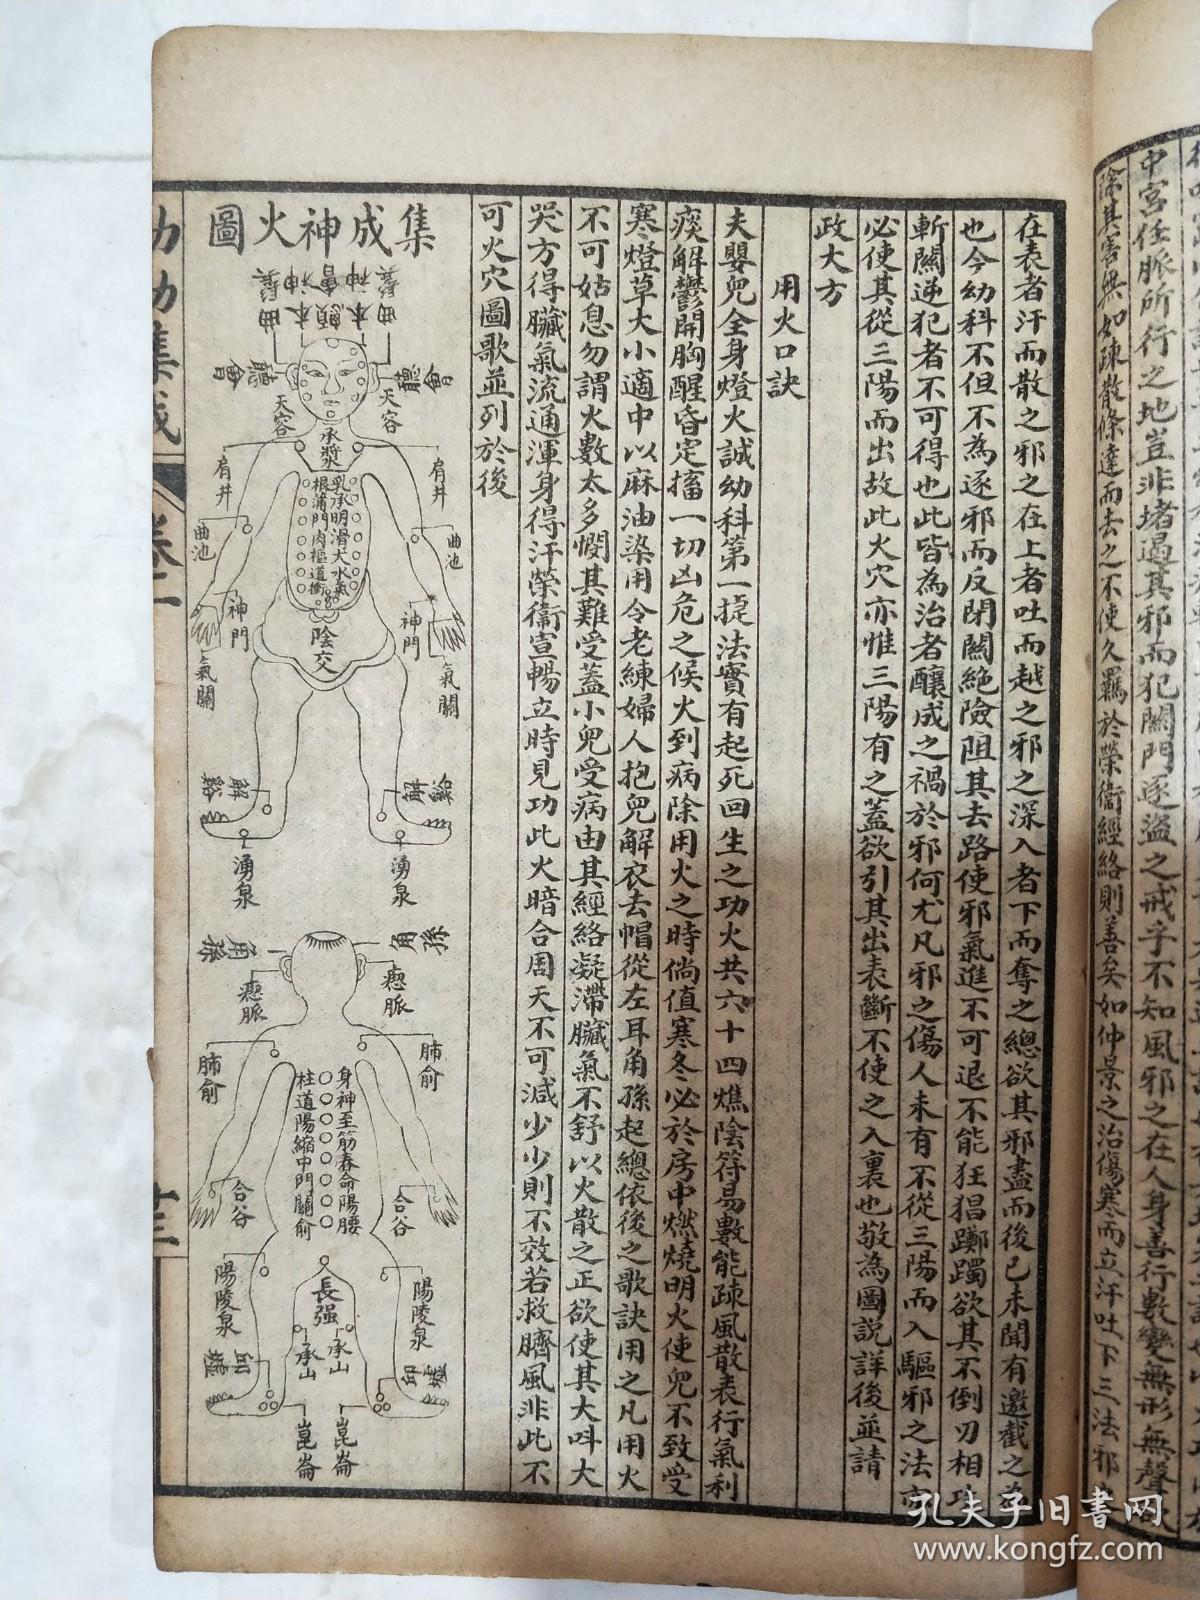 中宮任脈所行之地豈非堵遏其邪而犯關門逐盜之戒乎不知風邪之在人身善行數變無形無聲
除其害無如疎散條達而去之不使久羈於榮衞經絡則善矣如仲景之治傷寒而立汗吐下三法邪
在表者汗而散之邪之在上者吐而越之邪之深入者下而奪之總欲其邪盡而後已未聞有邀截之
也今幼科不但不為逐邪而反閉關絶險阻其去路使邪氣進不可退不能狂猖躑躅欲其不倒刃相攻
斬關逆犯者不可得也此皆為治者釀成之禍於邪何尤凡邪之傷人未有不從三陽而入驅邪之法亦
必使其從三陽而出故此火穴亦惟三陽有之蓋欲引其出表斷不使之入裏也敬為圖説詳後並請
政大方
用火口訣
夫嬰兒全身燈火誠幼科第一捉法實有起死回生之功火共六十四燋陰符易數能疎風散表行氣利
痰解鬱開胸醒昏定搐一切凶危之候火到病除用火之時倘值寒冬必於房中燃燒明火使兒不致受
寒燈草大小適中以麻油染用令老練婦人抱兒解衣去帽從左耳角孫起總依後之歌訣用之凡用火
不可姑息勿謂火數太多憫其難受蓋小兒受病由其經絡凝滯臟氣不舒以火散之正欲使其大呌大
哭方得臟氣流通渾身得汗榮衞宣暢立時見功此火暗合周天不可減少少則不效若救臍風非此不
可火穴圖歌並列於後
集成神火圖
曲鬢
本神
神會
顱
本神
曲鬢
聽會
聽會
天容
天容
承漿
肩井
肩井
乳承明滑大水氣
根滿門肉樞道衝
曲池
曲池
神門
神門
陰交
氣關
氣關
解谿
解谿
湧泉
湧泉
角孫
角孫
瘛脈
瘛脈
肺俞
肺俞
身神至筋脊命陽腰
柱道陽縮中門關俞
合谷
合谷
陽陵泉
陽陵泉
長强
承山
承山
邱墟
邱墟
崑崙
崑崙
幼幼集成
卷一
廿三
孔夫子旧书网
www.kongfz.com